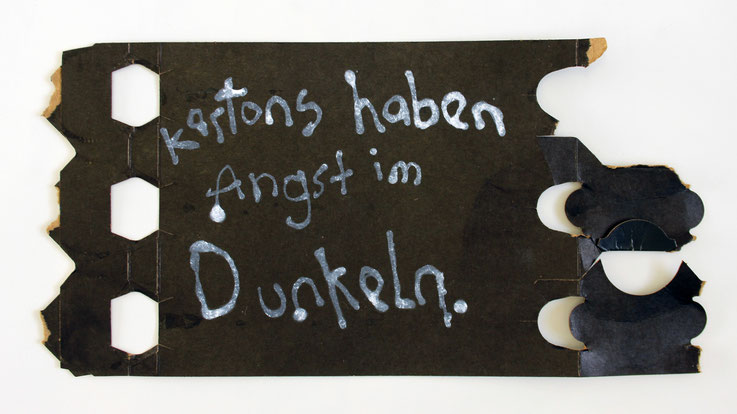 Kartons haben
Angst im
Dunkeln.